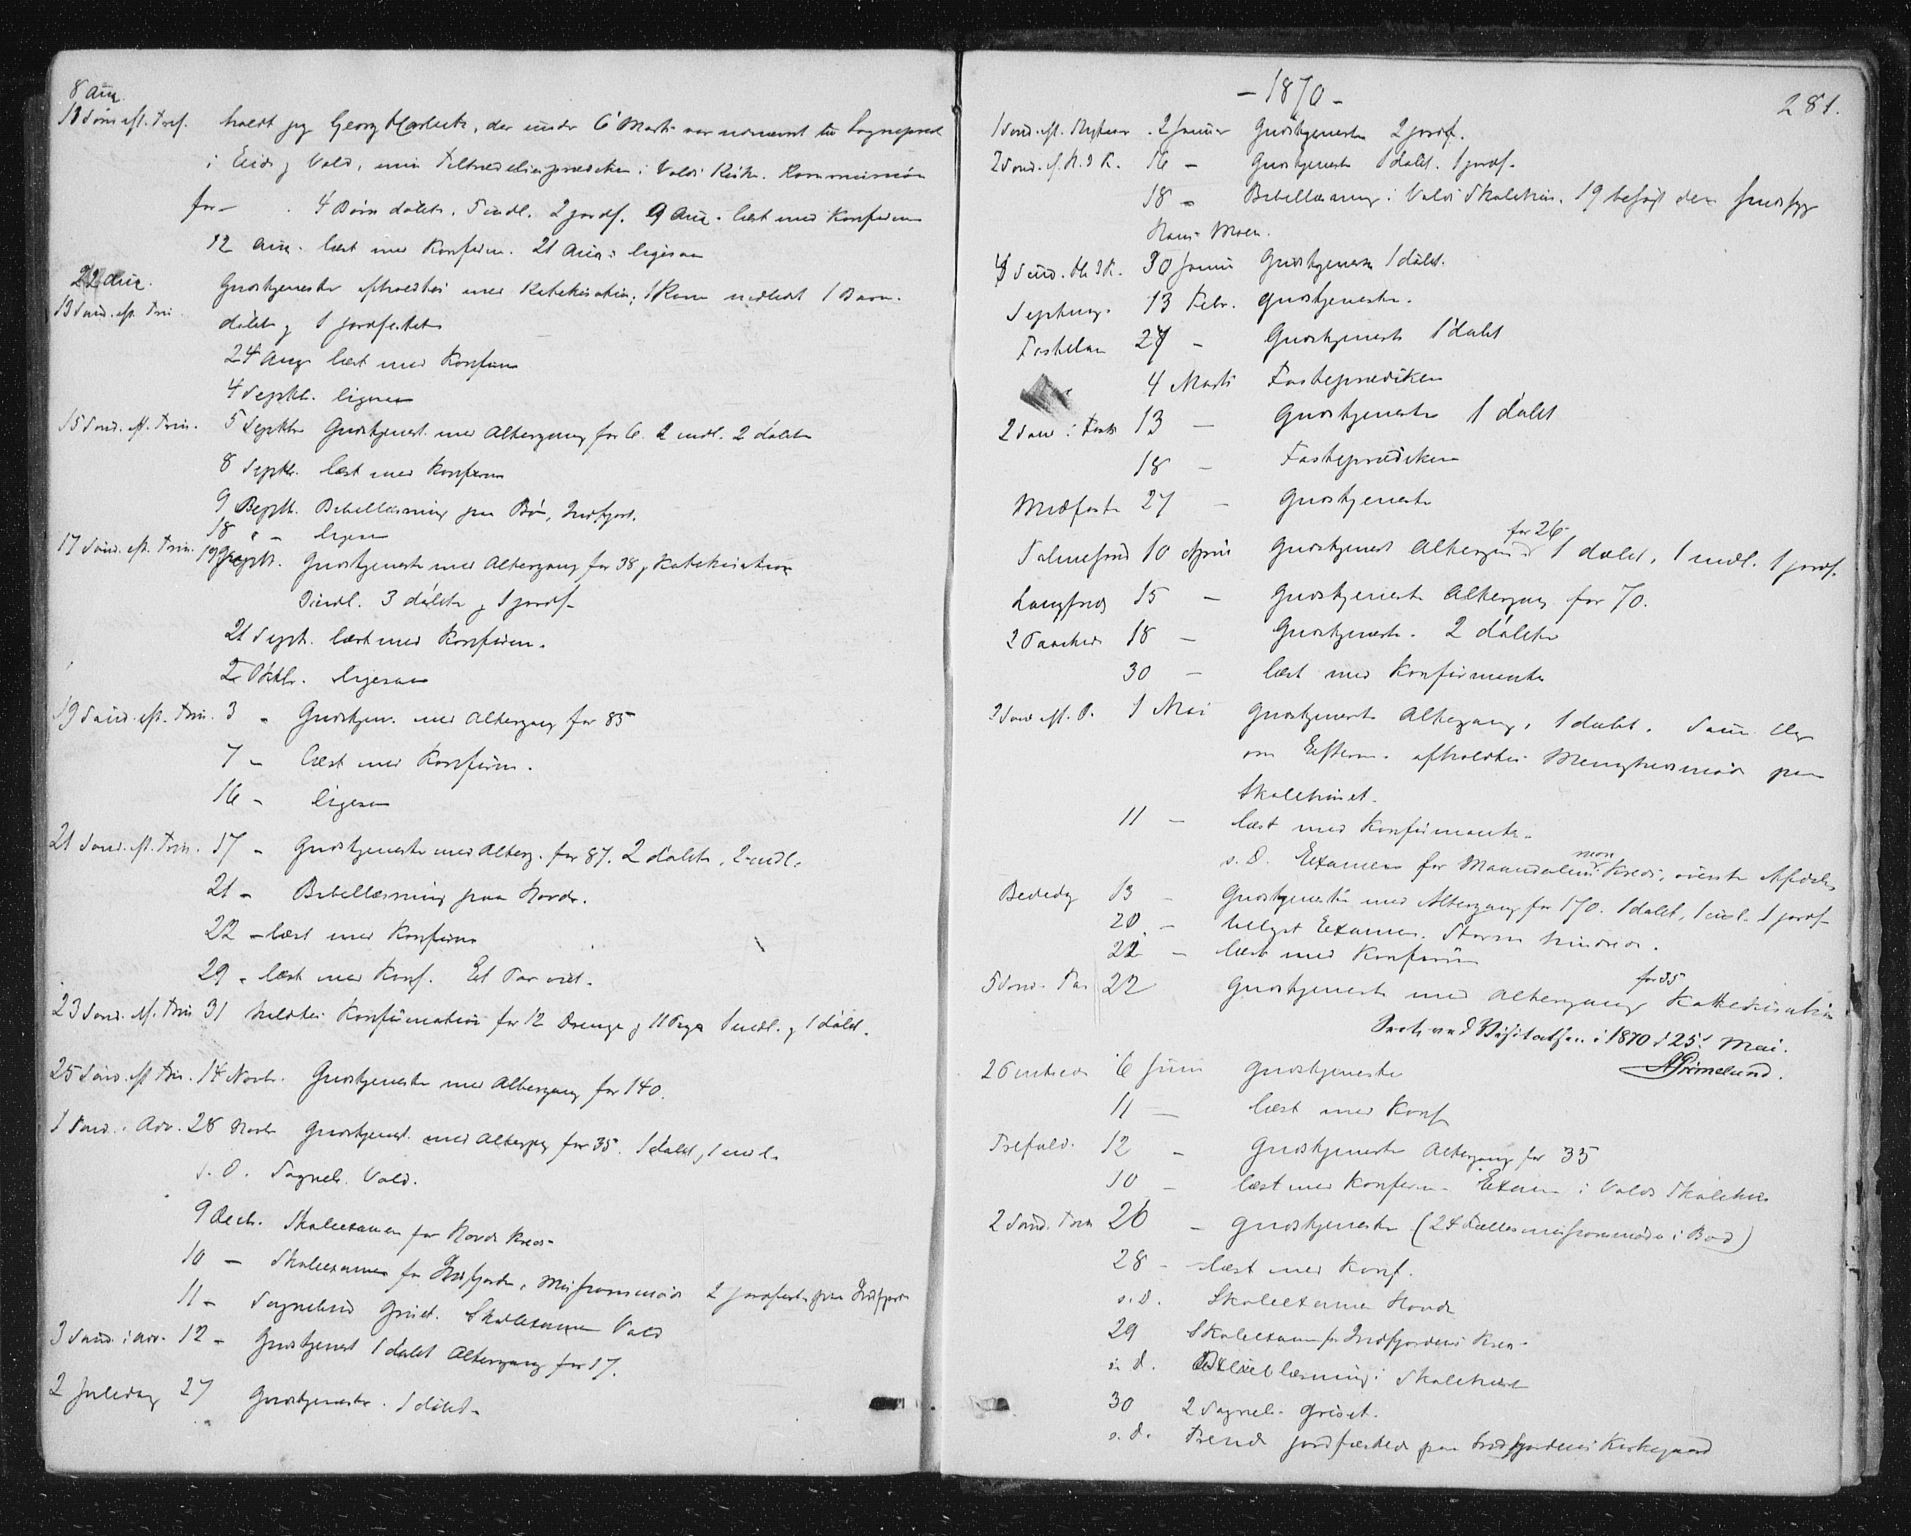 8 Aug.
holdt jeg Georg, der under 6 Marts var udnævnt til Sognepræst
i Eids og Vold, min Tiltrædelsesprædiken i Volds Kirke. Kommunion
for - 4 Børn døbte. 2 jordf. 9 Aug. læst med Konfirm
12 Aug. læst med Konfirm. 21 Aug. ligesaa
22 Aug. Gudstjeneste afholdtes med Katekisation; 1 Kone indledt 1 Barn
13 Sønd. eft. Trin. døbt og 1 jordfæstet
24 Aug læst med Konfirm
4 Septbr. ligesaa
15 Sønd. eft. Trin. 5 Septbr Gudstjenest. med Altergang for 6. 2 indl. 2 døbte
8 Septb. læst med Konfirm
9 Septb. Bibellæsning paa Bø, Indfjord.
18 " - ligesaa
17 Sønd. eft. Trin. 19 Septb. Gudstjeneste med Altergang for 38 og Katekisation
indl. 3 døbte og 1 jordf.
21 Septb. læst med Konfirm.
2 Oktbr. ligesaa
19 Sønd. eft. Trin. 3 - Gudstjen. med Altergang for 85
7 - læst med Konfirm.
16 - ligesaa
21 Sønd. eft. Trin. 17 - Gudstjeneste med Alterg. for 87. 2 døbte, 2 indl.
21 - Bibellæsning paa Hovde.
22 - læst med Konfirm
29 - læst med Konf. Et Par viet.
23 Sønd. eft. Trin 31 holdtes Konfirmation for 12 Drenge og 11 Piger 1 indl. og 1 døbt.
25 Sønd. eft Trin. 14 Novbr. Gudstjeneste med Altergang for 140.
1 Sønd. i Adv. 28 Novbr Gudstjenest. med Altergang for 35. 1 døbt, 1 indl.
s. D. Sogneb. Vold.
9 Decb. Skoleexamen for Hovde Kreds
10 - Skoleexamen for Indfjorden, Missionsmøde 2 jordfæstet paa Indfjorden
11 - Sognebud Skoleexamen Vold
3 Sønd. i Adv. 12 - Gudstjenest 1 døbt Altergang for 17.
2 Juledag 27 Gudstjeneste. 1 døbt.
- 1870 -
281.
1 Sønd. eft. Nytaar 2 Januar Gudstjeneste 2 jordf.
2 Sønd. e. H. 3 K. 16 - Gudstjeneste 1 døbt. 1 jordf.
18 - Bibellæsning i Volds Skolehus. 19 besøgt den
Hans Moen.
4 Sønd. H. 3 K. 30 Januar Gudstjeneste 1 døbt.
Septuag. 13 Febr. Gudstjeneste.
Fastelav 27 - Gudstjeneste 1 døbt
4 Marts Fasteprædiken
2 Sønd i Faste 13 - Gudstjeneste 1 døbt
18 - Fasteprædiken
Midfaste 27 - Gudstjeneste
Palmesønd 10 April Gudstjenest Altergang for 26 1 døbt, 1 indl. 1 jordf.
Langfred 15 - Gudstjeneste Altergang for 70.
2 Paasked 18 - Gudstjeneste. 2 døbte
30 - læst med Konfirmanter
2 Sønd eft. P. 1 Mai Gudstjeneste Altergang, 1 døbt. Samme Dag
om Efterm. afholdtes Menighedsmøde paa
Skolehuset.
11 - læst med Konfirmanter
s. D. Examen for Maandalens Kreds, øverste Afdeling
Bededag 13 - Gudstjeneste med Altergang for 170. 1 døbt, 1 indl. 1 jordf
20 - belyst Examen. Storm hindrede.
22 - læst med Konfirm
5 Sønd. Paa 22 Gudstjeneste med Altergang for 35 Kathekisation
Seet ved Visitatsen i 1870 d 25. Mai.
A Grimelund.
2 Pintsed 6 Juni Gudstjeneste
11 - læst med Konf
Trefold. 12 - Gudstjeneste Altergang for 35
10 - læst med Konfirm - Examen i Volds Skolehus
2 Sønd. Trin 26 - Gudstjeneste (24 Fællesmissionsmøde i Bod)
28 - læst med Konf.
s. D. Skoleexamen Hovde
29 Skoleexam for Indfjordens Kreds
s. D. Bibellæsning i Skolehuset
30 2 Sogneb.
s. D. jordfæstede paa Indfjordens Kirkegaard